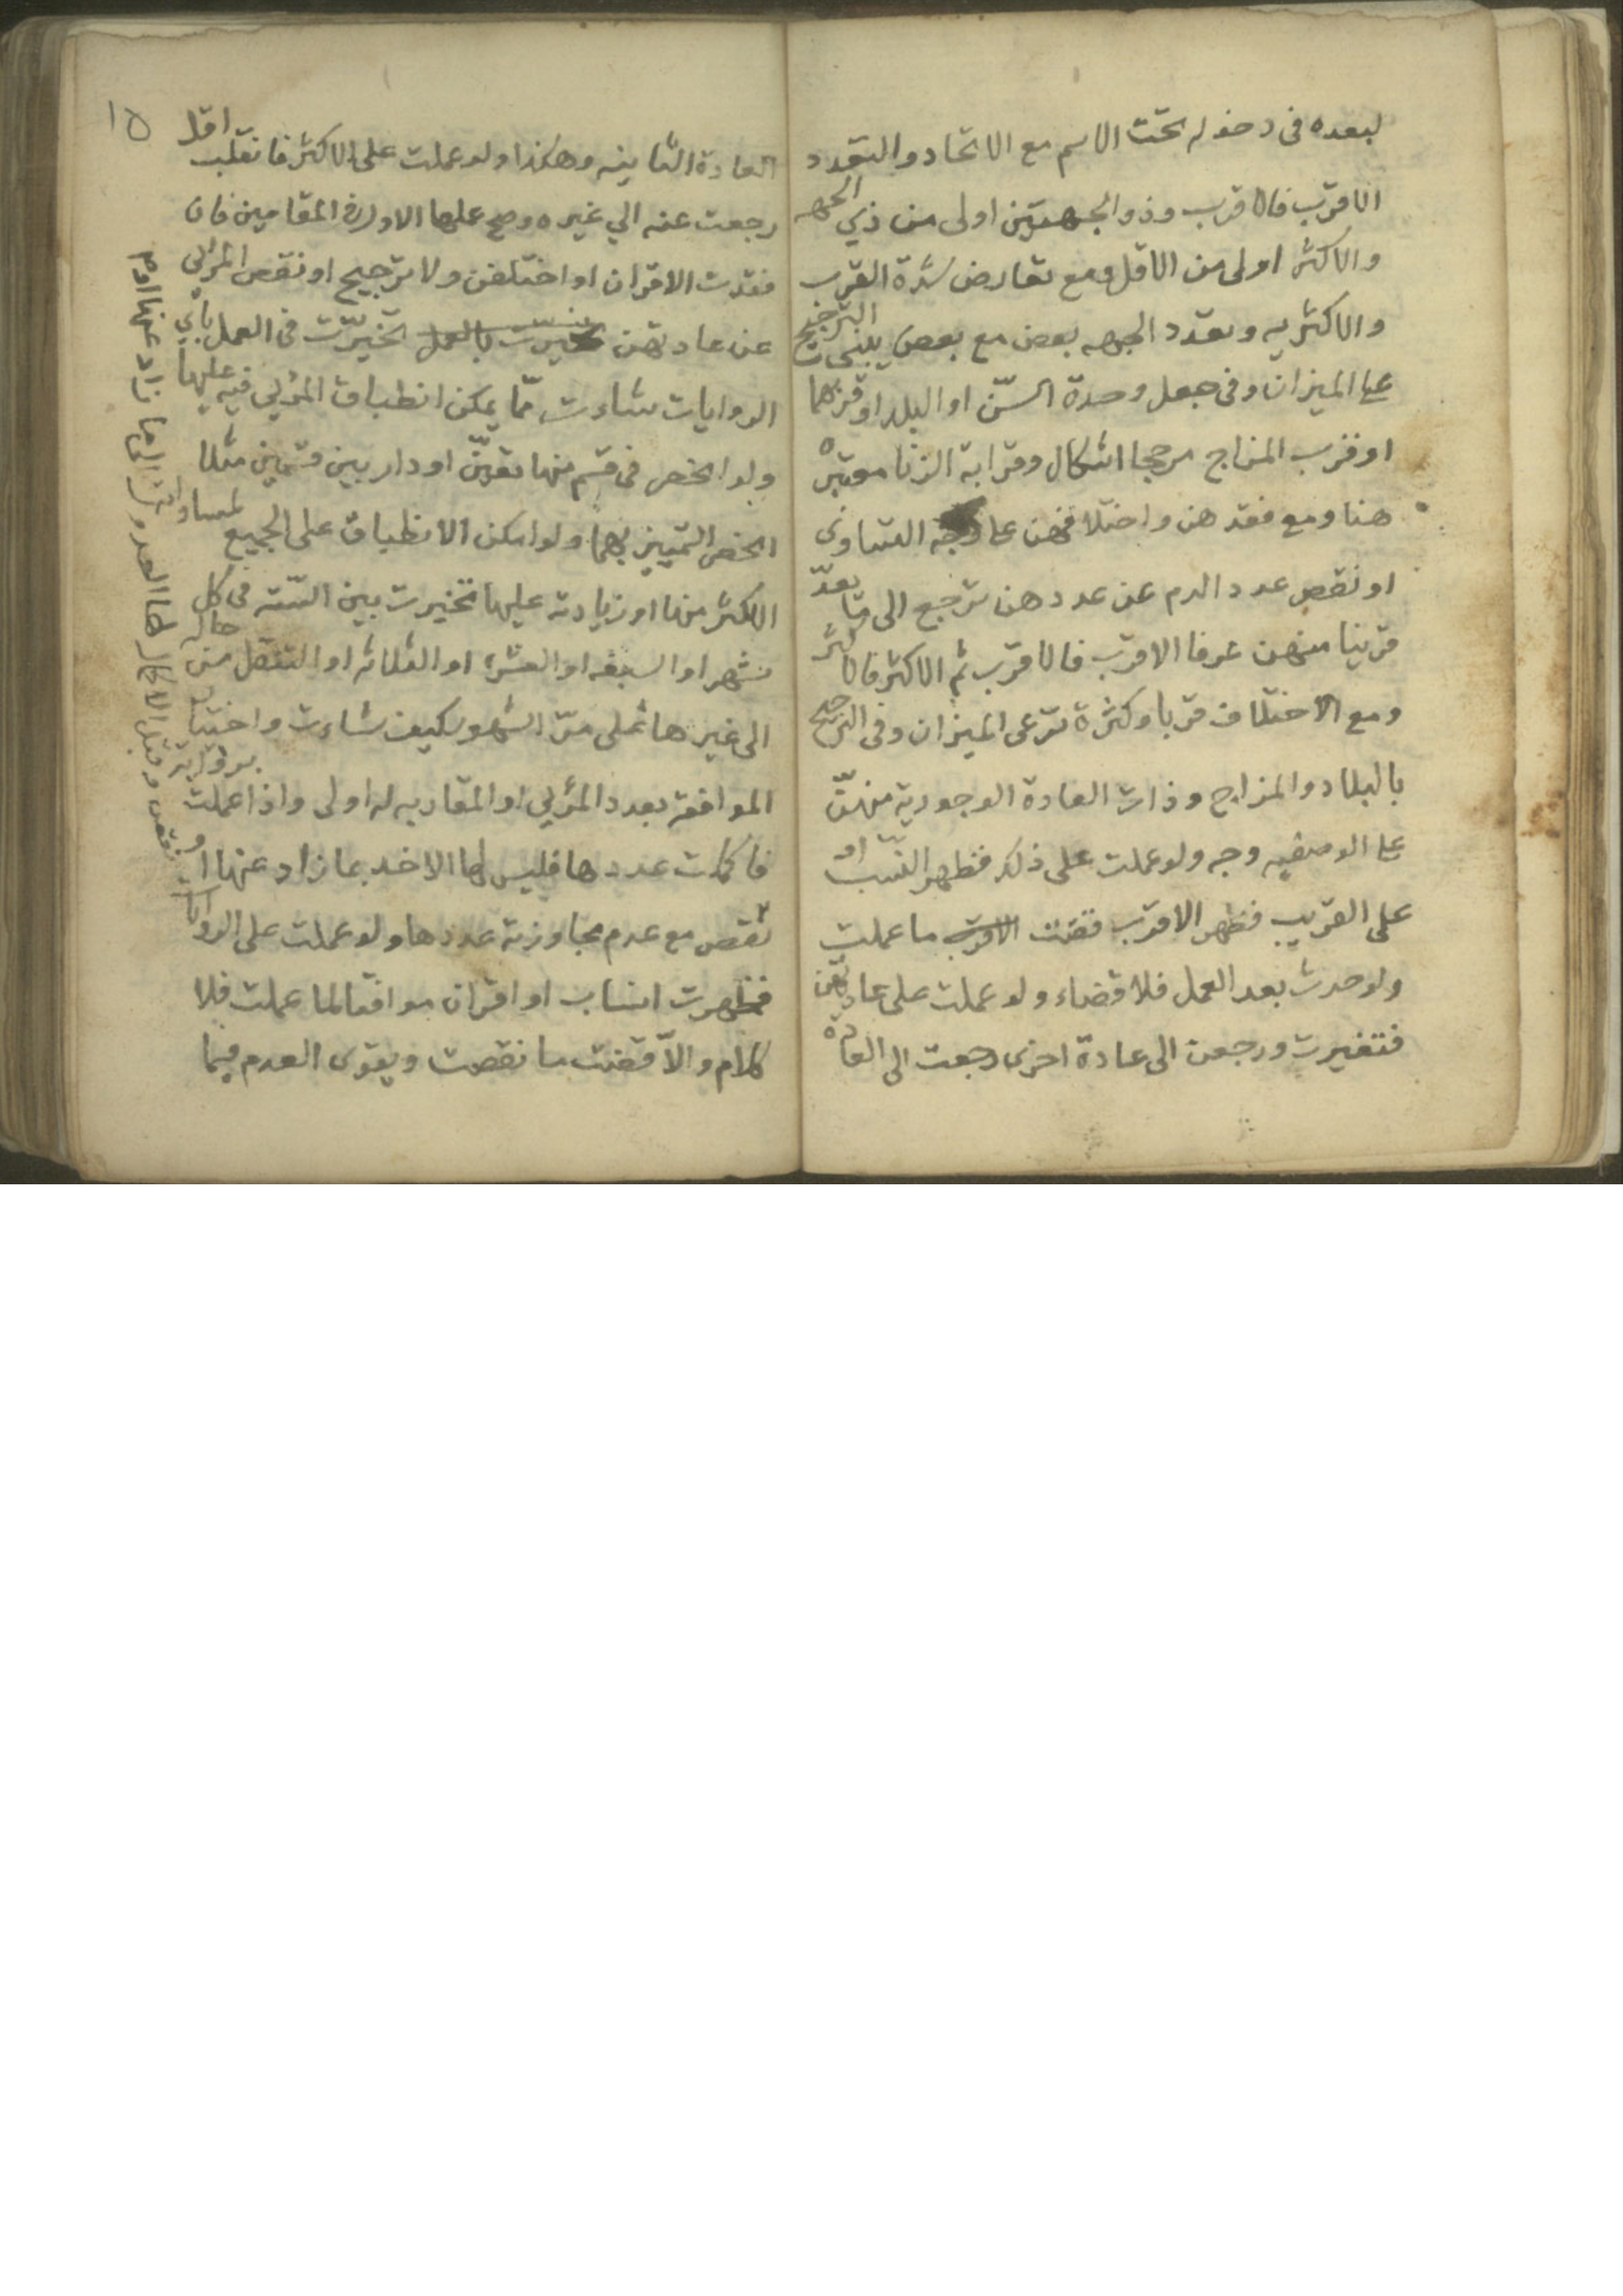 لبعده في دخوله تحت الاسم مع الاتحاد والتعدد
الاقرب فالاقرب وذو الجهتين اولى من ذي الجهه
والاكثر اولى من الاقل ومع تعارض شدة القرب
والاكثريه وتعدد الجهه بعض مع بعض يبنى الترجيح
على الميزان وفي جعل وحدة السنّ او البلد او قربهما
او قرب المزاج مرجحا اشكال وقرابة الزنا معتبره
هنا ومع فقدهن واختلافهن على وجه التساوى
او نقص عدد الدم عن عددهن ترجع الى من تعدّ
قرينا منهن عرفا الاقرب فالاقرب ثم الاكثر فالاكثر
ومع الاختلاف قربا وكثرة ترعى الميزان وفي الترجيح
بالبلاد والمزاج وذات العادة الوجودية منهنّ
على الوصفيه وجه ولو عملت على ذلك فظهر النسب او
على القريب فظهر الاقرب قضت الاقرب ما عملت
ولو حدث بعد العمل فلا قضاء ولو عملت على عادتهن
فتغيرت ورجعن الى عادة اخرى رجعت الى العادة
١٥
العادة الثانيه وهكذا ولو عملت على الاكثر فانقلب اقل
رجعت عنه الي غيره وصح عملها الاول في المقامين فان
فقدت الاقران او اختلفن ولا ترجيح او نقص المرئي
عن عادتهن تخيرت بالعمل تخيّرت في العمل بأي
الروايات شاءت ممّا يمكن انطباق المرئي فيه عليها
ولو انحصر في قسم منها تعيّن او دار بين قسمين مثلا
انحصر التمييز بهما ولو امكن الانطباق على الجميع لمساواته
الاكثر منها او زيادته عليها تخيرت بين الستّه في كل
شهر او السبعه او العشره او الثلاثه او التنقل من حاله
الى غيرها على مرّ الشهور كيف شاءت واختيار
الموافقة بعدد المرئي او المقاربه له اولى واذا عملت برواية
فاكملت عددها فليس لها الاخذ بما زاد عنها او
نقص مع عدم مجاوزته عددها ولو عملت على الروايات
فظهرت انساب او اقران موافقا لما عملت فلا
كلام والاّ قضت ما نقصت ويقوى العدم فيما
نقص وقبل الاكمال لها العدول الى ما زاد عنها او